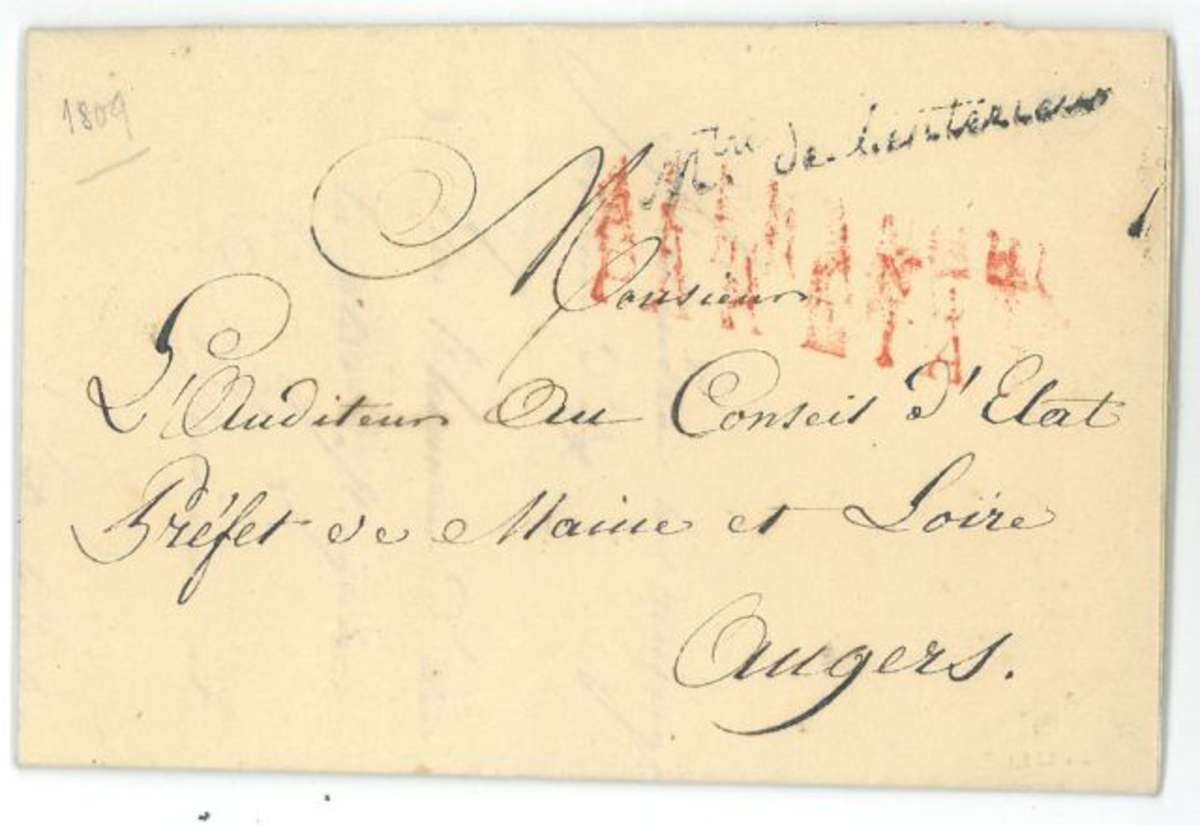 1809
Mtre de l'intérieur
Monsieur
L'Auditeur Au Conseil d'Etat
Préfet de Maine et Loire
Angers.